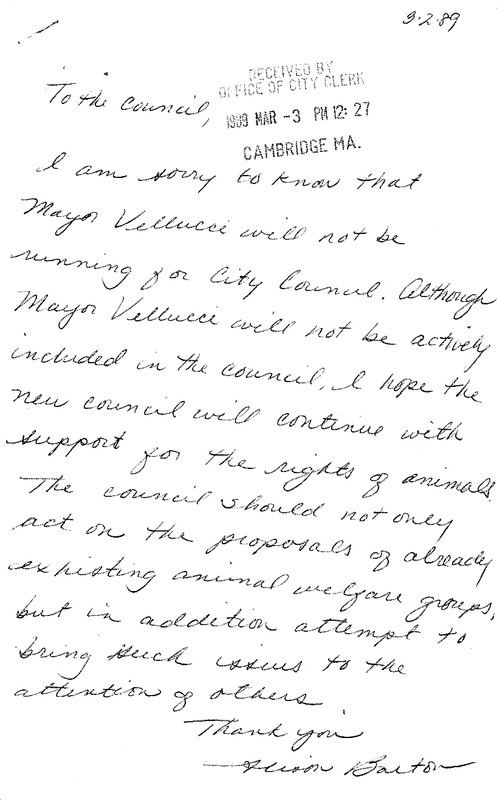 3·2·89
RECEIVED BY
OFFICE OF CITY CLERK
1989 MAR -3 PM 12: 27
CAMBRIDGE MA.
To the Council,
I am sorry to know that
Mayor Vellucci will not be
running for City Council. Although
Mayor Vellucci will not be actively
included in the council, I hope the
new council will continue with
support for the rights of animals.
The council should not only
act on the proposals of already
exhisting animal welfare groups,
but in addition attempt to
bring such issues to the
attention of others.
Thank you
Barton